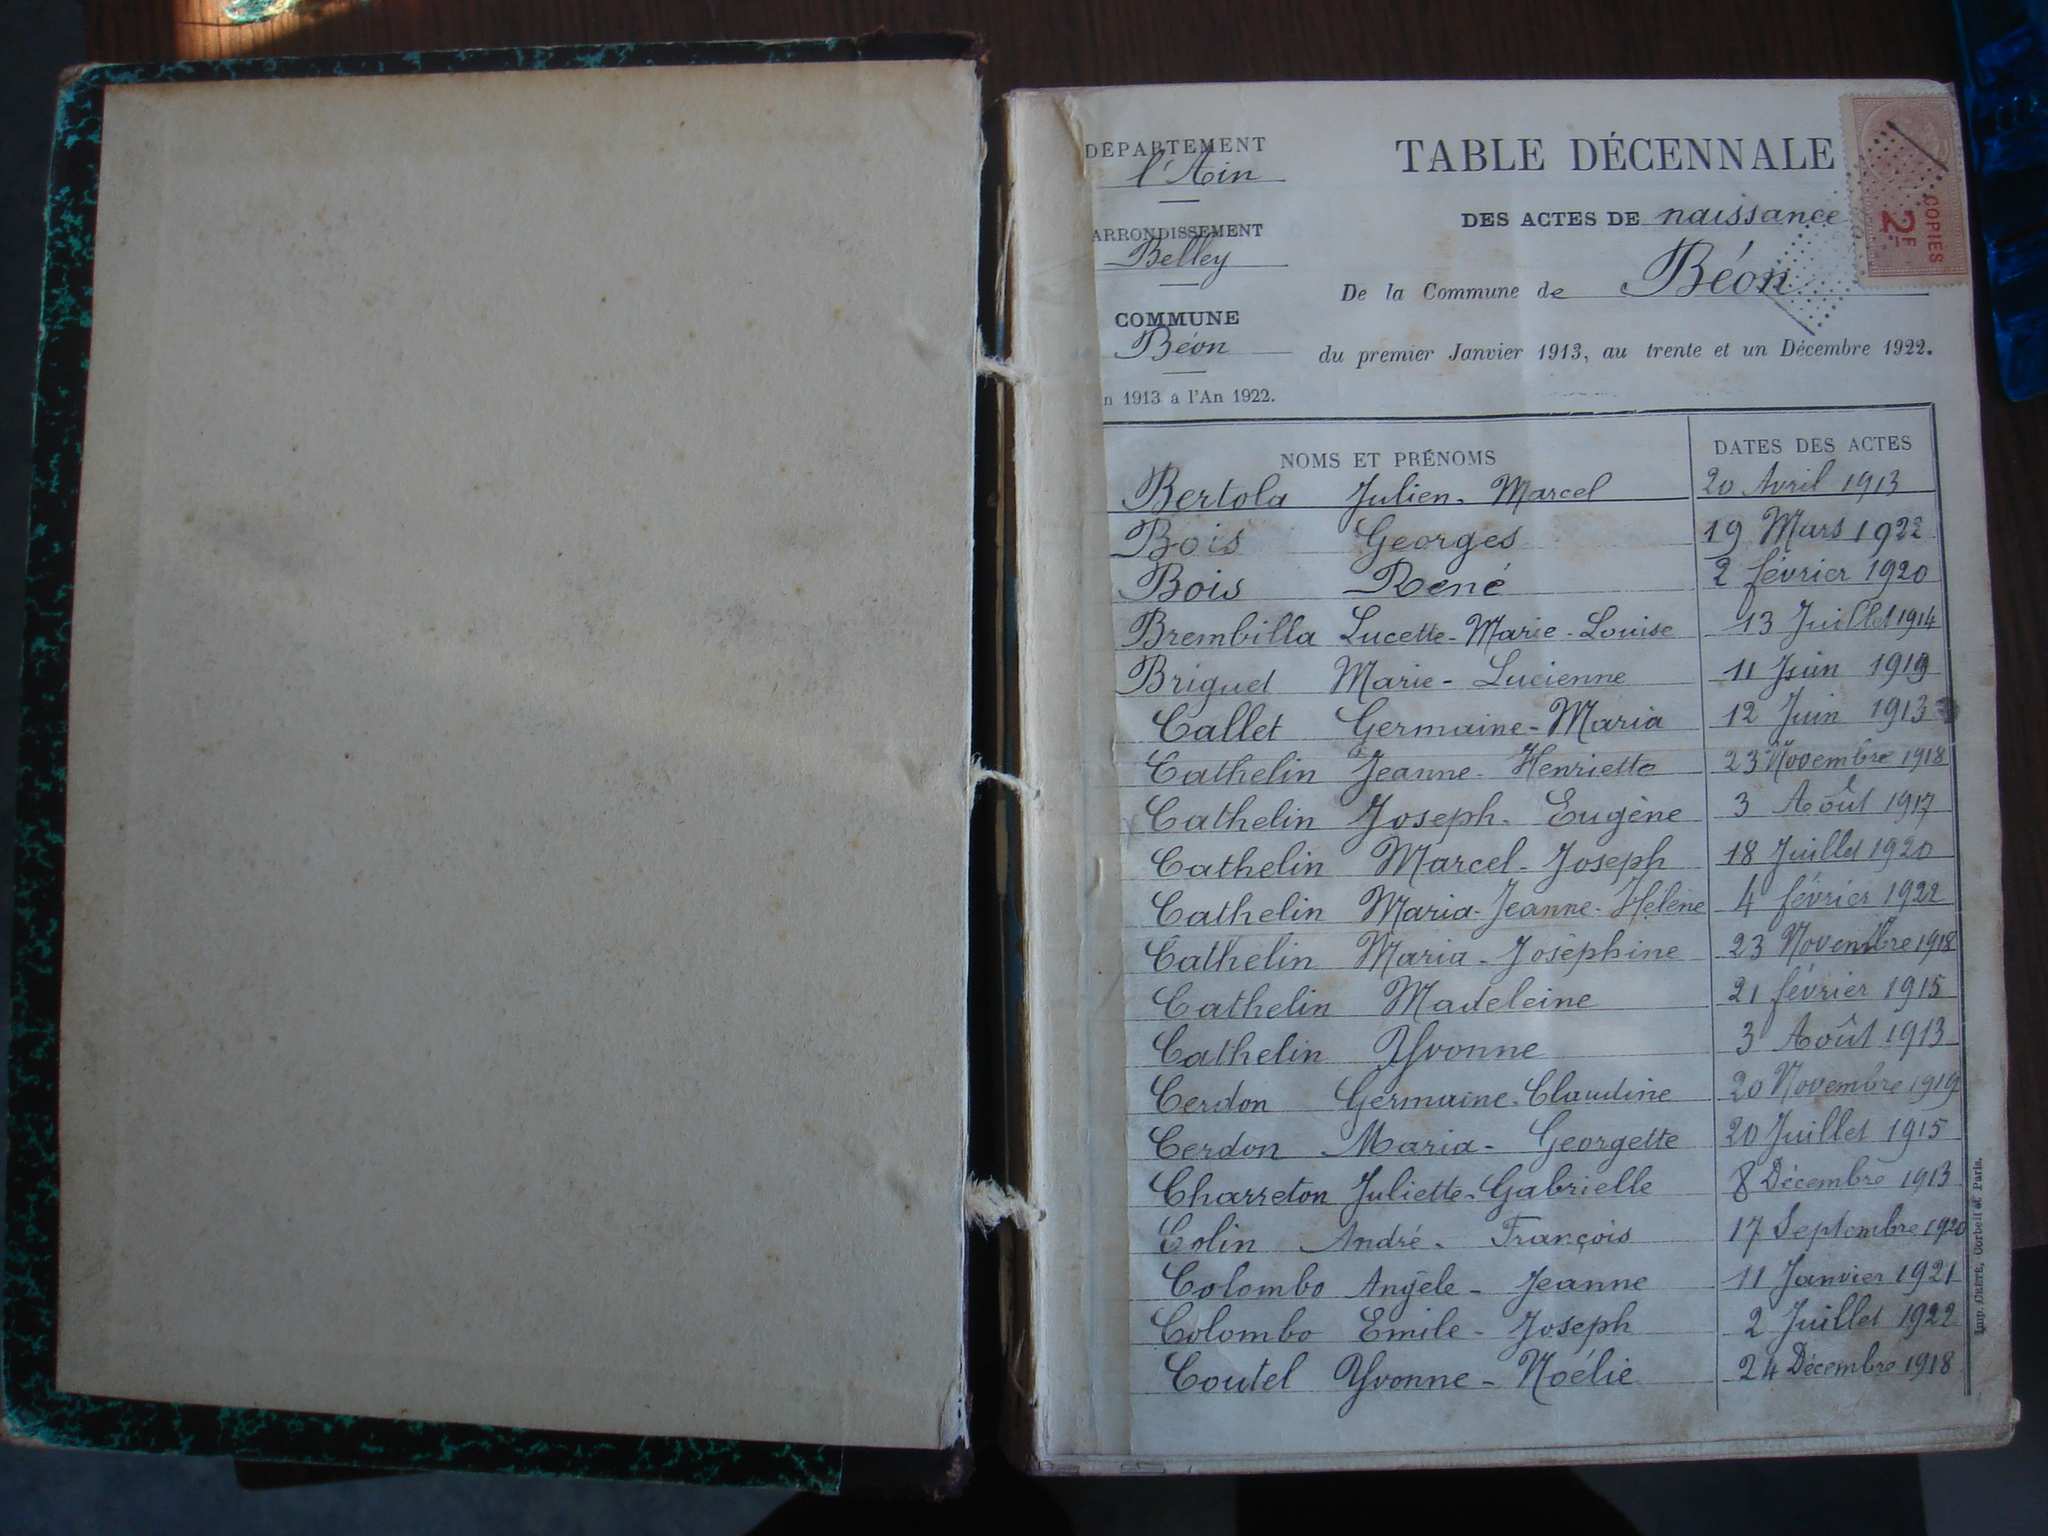 DÉPARTEMENT
l'Ain
ARRONDISSEMENT
Belley
COMMUNE
Béon
n 1913 a l'An 1922.
TABLE DÉCENNALE
DES ACTES DE naissance
De la Commune de Béon
du premier Janvier 1913, au trente et un Décembre 1922.
COPIES
2F
NOMS ET PRÉNOMS DATES DES ACTES
Bertola Julien-Marcel 20 Avril 1913
Bois Georges 19 Mars 1922
Bois René 2 février 1920
Brembilla Lucette-Marie-Louise 13 Juillet 1914
Briguet Marie-Lucienne 11 Juin 1919
Callet Germaine-Maria 12 Juin 1913
Cathelin Jeanne-Henriette 23 Novembre 1918
Cathelin Joseph-Eugène 3 Août 1917
Cathelin Marcel-Joseph 18 Juillet 1920
Cathelin Maria-Jeanne-Hélène 4 février 1922
Cathelin Maria-Joséphine 23 Novembre 1918
Cathelin Madeleine 21 février 1915
Cathelin Yvonne 3 Août 1913
Cerdon Germaine-Claudine 20 Novembre 1919
Cerdon Maria-Georgette 20 Juillet 1915
Charreton Juliette-Gabrielle 8 Décembre 1913
Colin André-François 17 Septembre 1920
Colombo Angèle-Jeanne 11 Janvier 1921
Colombo Emile-Joseph 2 Juillet 1922
Coutel Yvonne-Noélie 24 Décembre 1918
Imp. CRÉTÉ, Corbeil et Paris.